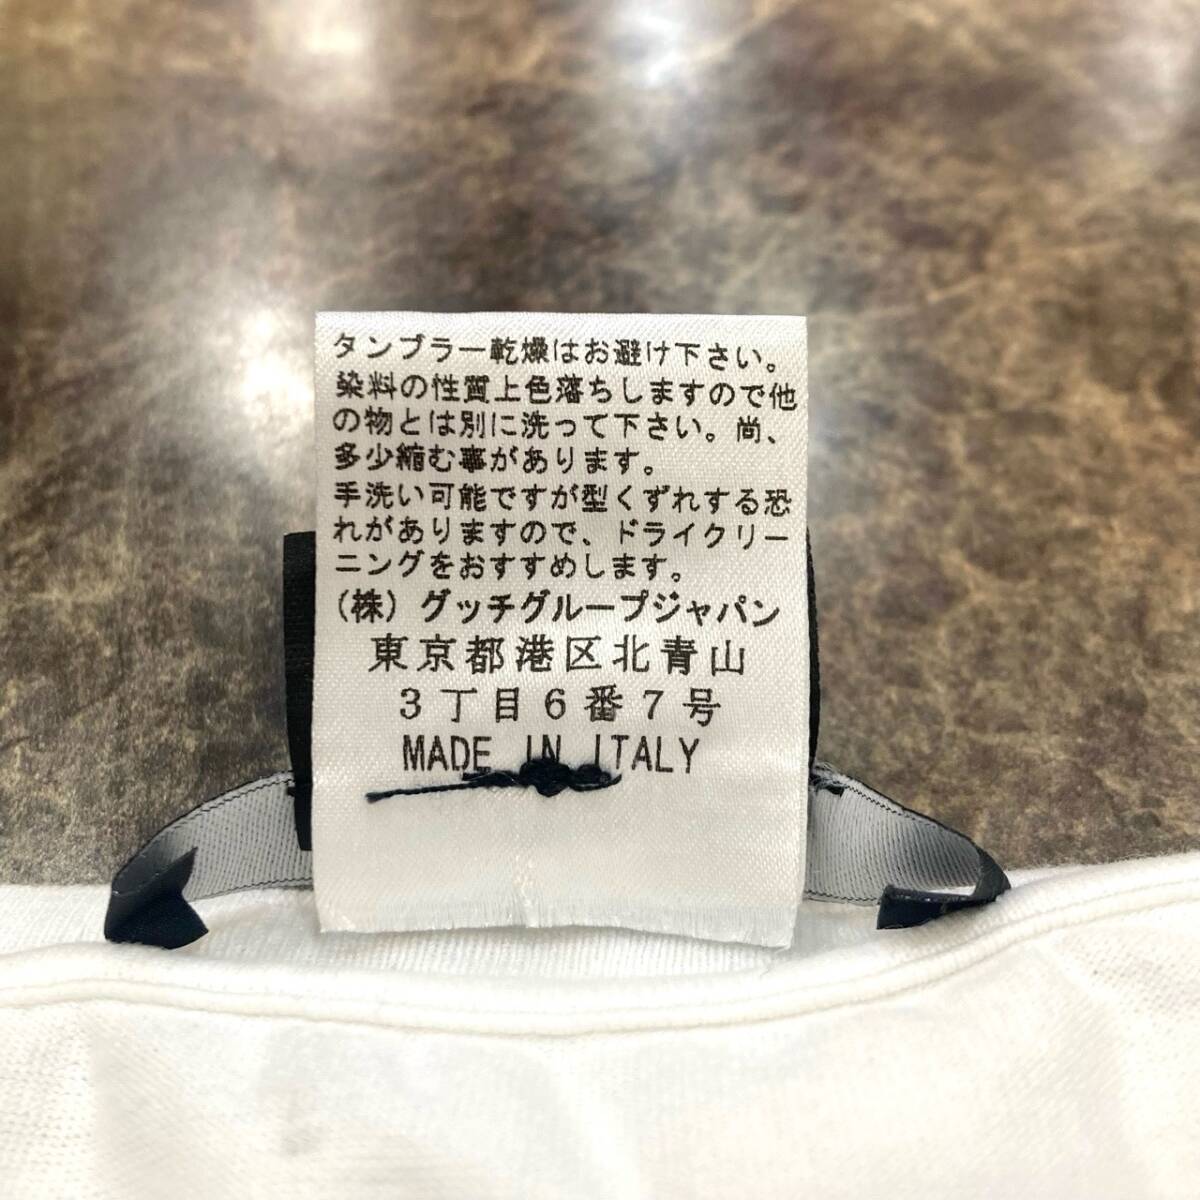 タンブラー乾燥はお避け下さい。
染料の性質上色落ちしますので他
の物とは別に洗って下さい。尚、
多少縮む事があります。
手洗い可能ですが型くずれする恐
れがありますので、ドライクリー
ニングをおすすめします。
(株)グッチグループジャパン
東京都港区北青山
3丁目6番7号
MADE IN ITALY